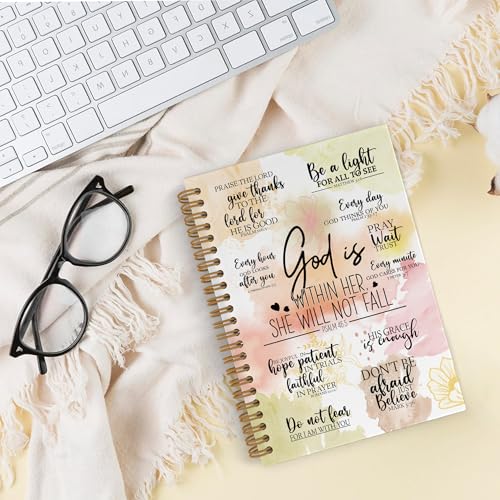 PRAISE THE LORD
give thanks
TO THE
lord for
HE IS GOOD
Be a light
FOR ALL TO SEE
Every day
GOD THINKS OF YOU
PRAY
Wait
TRUST
Every hour
GOD LOOKS
after you
Every minute
GOD CARES FOR YOU
God is
WITHIN HER,
SHE WILL NOT FALL
PSALM 46:5
HIS GRACE
is enough
REJOICEFUL IN
hope patient
IN TRIALS
faithful
IN PRAYER
DON'T BE
afraid
JUST
Believe
MARK 5:36
Do not fear
FOR I AM WITH YOU